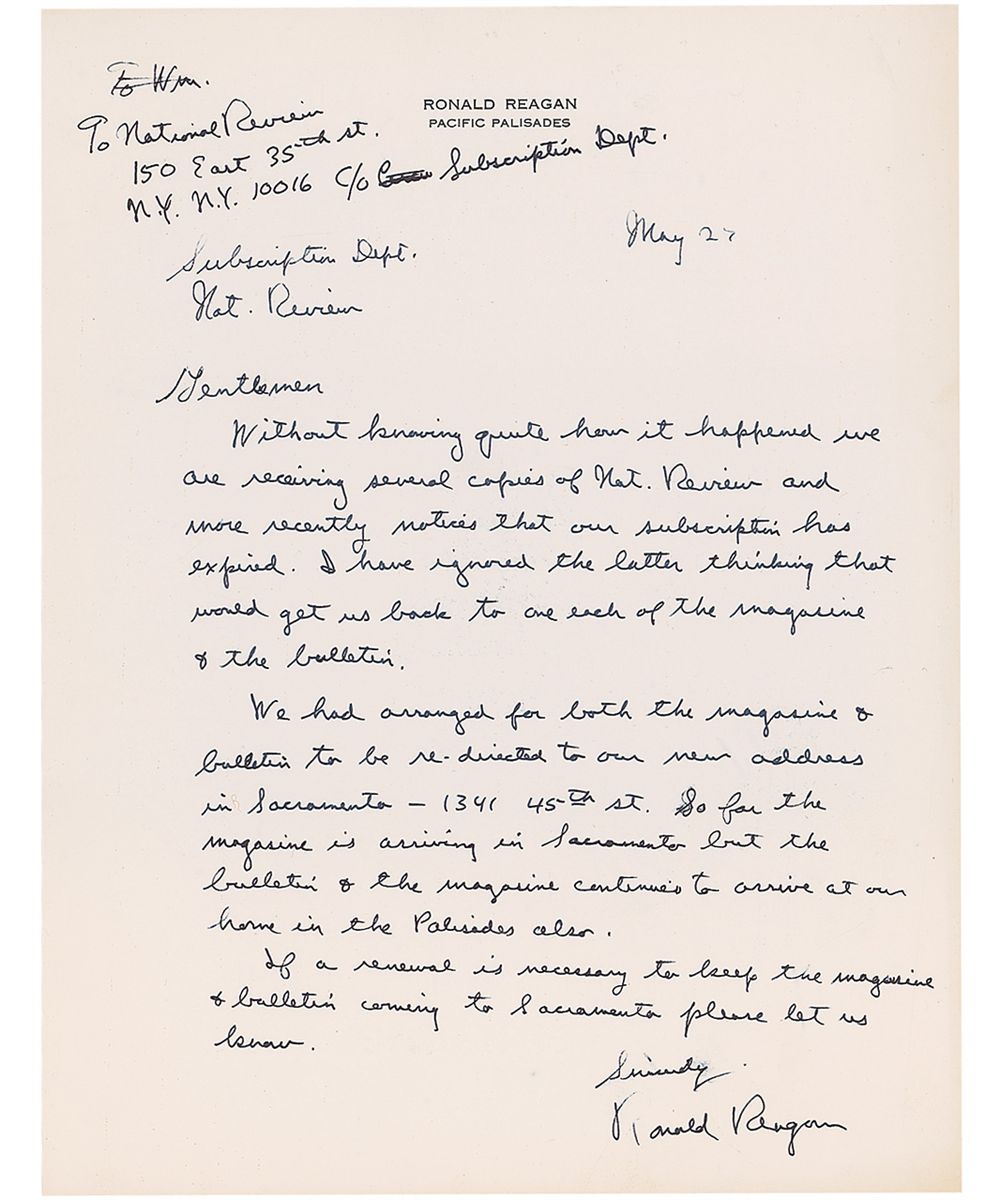 To Wm.
RONALD REAGAN
PACIFIC PALISADES
To National Review
150 East 35th st.
N.Y. N.Y. 10016 C/O Subscription Dept.
May 27
Subscription Dept.
Nat. Review
Gentlemen
Without knowing quite how it happened we
are receiving several copies of Nat. Review and
more recently notices that our subscription has
expired. I have ignored the latter thinking that
would get us back to one each of the magasine
& the bulletin.
We had arranged for both the magasine &
bulletin to be re-directed to our new address
in Sacramento – 1341 45th st. So far the
magasine is arriving in Sacramento but the
bulletin & the magasine continues to arrive at our
home in the Palisades also.
If a renewal is necessary to keep the magasine
& bulletin coming to Sacramento please let us
know.
Sincerely
Ronald Reagan